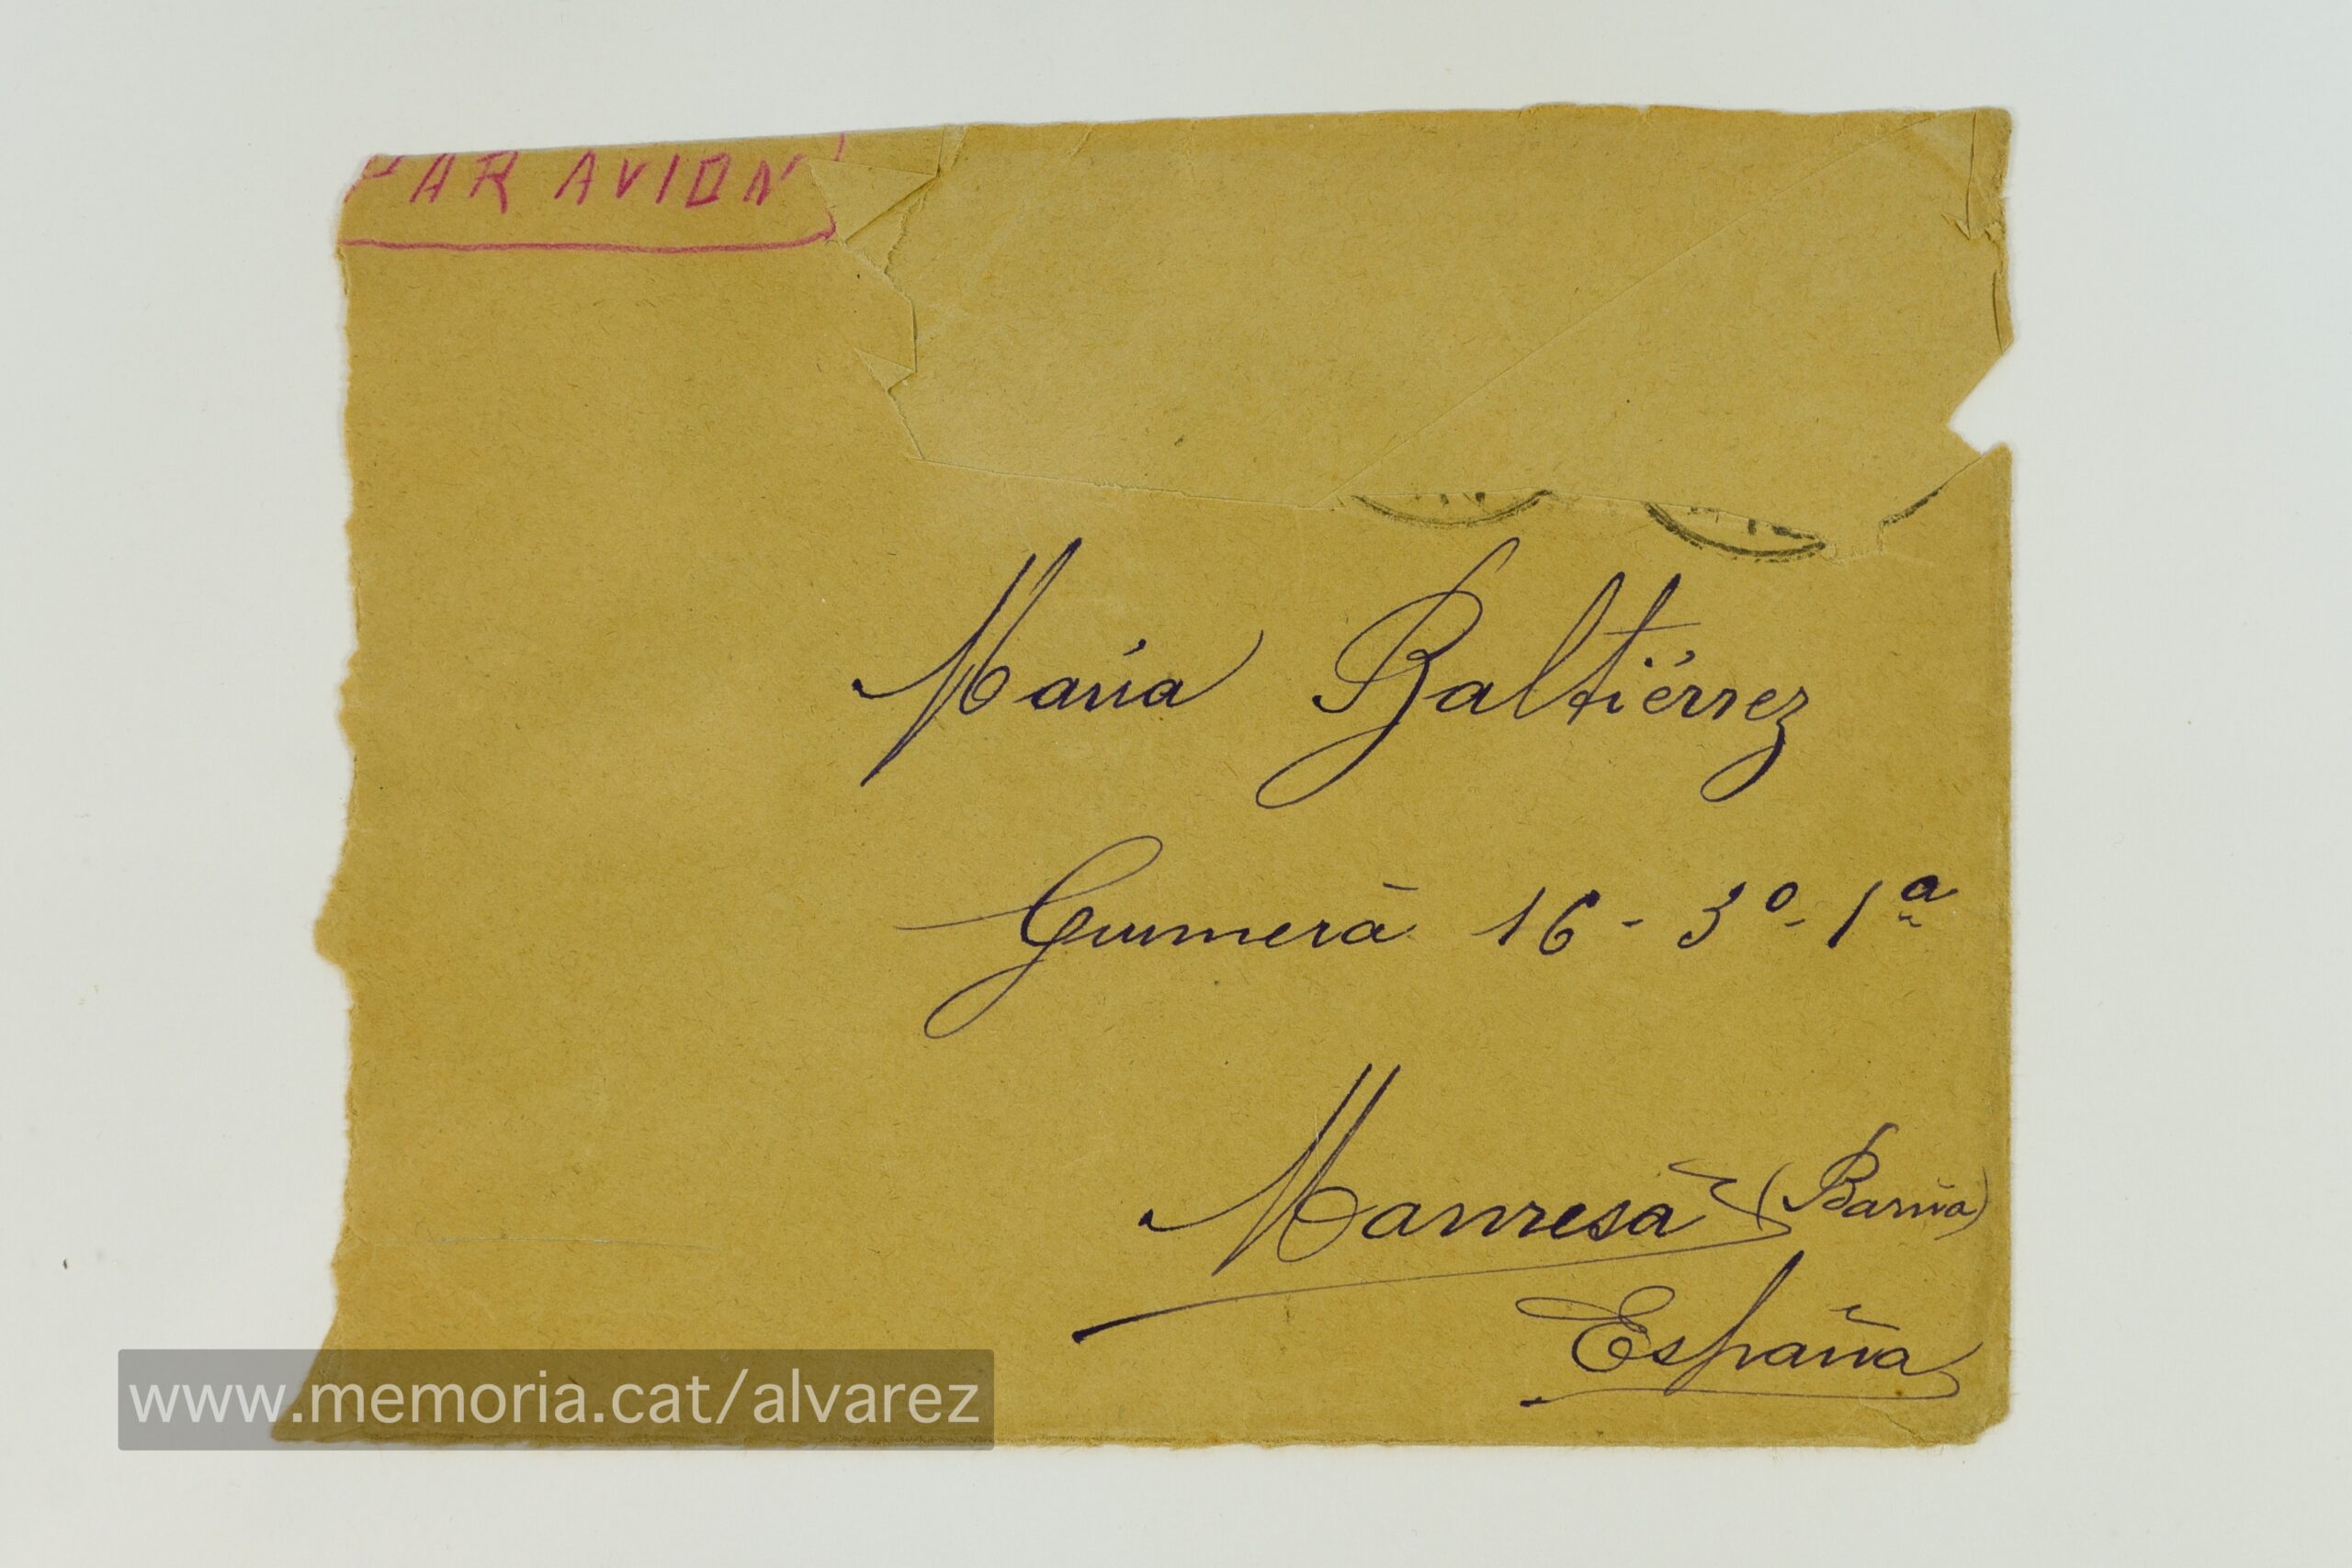 PAR AVION
María Baltiérrez
Guimerà 16 - 3º - 1ª
Manresa (Barna)
España
www.memoria.cat/alvarez